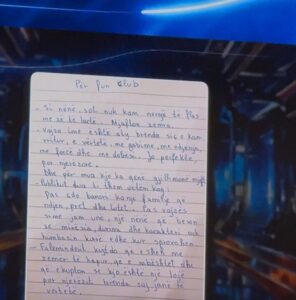 Për fun club
- Si nënë, sot nuk kam nevojë të flas
me zë të lartë. Mjafton zemra.
- Vajza ime është aty brenda siç e kam
rritur, e vërtetë, me gabime, me ndjenja,
me forcë dhe me dobësi. Jo perfekte,
por njerëzore.
Dhe për mua kjo ka qenë gjithmonë
- Publikut dua t'i them vetëm kaq:
Pas çdo banori ka një familje që
ndjen, pret dhe lutet. Pas vajzës
sime jam unë, një nënë që beson
se mirësia, durimi dhe karakteri nuk
humbasin kurrë edhe kur sprovohen
- Faleminderit kujtdo që e sheh me
zemër të hapur, që e mbështet dhe
që e kupton se kjo është një lojë
por njerëzit brenda saj janë të
vërtetë.